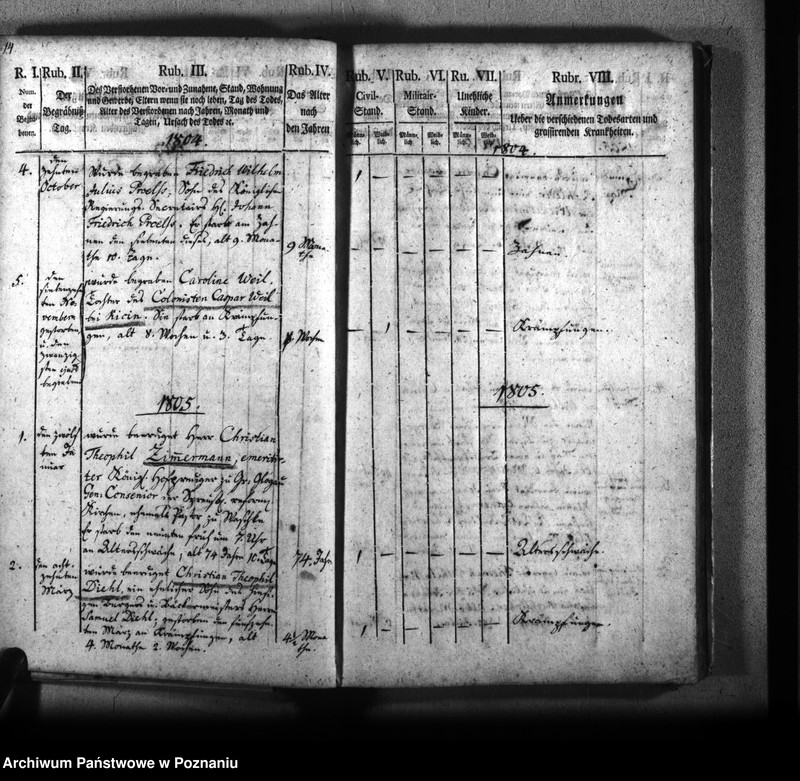 14
R. I. Rub. II. Rub. III. Rub. IV.
Num. der
Der Begräbniß Tag.
Des Verstorbenen Vor- und Zunahme, Stand, Wohnung
und Gewerbe, Eltern wenn sie noch leben, Tag des Todes,
Alter des Verstorbenen nach Jahren, Monath und
Tagen, Ursach des Todes ꝛc.
Das Alter
nach
den Jahren
1804
4.
den
zehnten
October
wurde begraben Friedrich Wilhelm
Julius Proelss, Sohn des Königlichen
Regierungs-Secretairs H. Johann
Friedrich Proelss. Er starb am Zah-
nen den siebenten dieses, alt 9. Mona-
the 10. Tage.
9 Mona-
the
5.
den
vember
gestorben
u. den
zwanzig-
sten
begraben
wurde begraben Caroline Weil,
Tochter des Colonisten Caspar Weil
bei Kicin. Sie starb an Krämpfun-
gen, alt 8. Wochen u. 3. Tage
Wochen
1805.
1.
den zwölf-
ten Ja-
nuar
wurde beerdigt Herr Christian
Theophil Zimermann, emeritir-
ter Königl. Hofprediger zu Gr. Glogau
Con: Consenior der reform.
Kirchen, ehemals Pastor zu Waschke
Er starb den neunten früh um 7. Uhr
an Altersschwäche, alt 74 Jahr 10. Tage
74. Jahr
2.
den acht-
zehnten
März
wurde beerdigt Christian Theophil
Diehl, ein ehelicher Sohn des hiesi-
gen Bürgers u. Bäckermeisters Herrn
Samuel Diehl; gestorben den fünfzehn-
ten März an Krämpfungen, alt
4. Monathe 2. Wochen.
4½ Mona-
the.
Rub. V. Rub. VI. Ru. VII. Rubr. VIII.
Civil-
Stand.
Militair-
Stand.
Unehliche
Kinder.
Anmerkungen
Ueber die verschiedenen Todesarten und
grassirenden Krankheiten.
Männ-
lich.
Weib-
lich.
Männ-
lich.
Weib-
lich.
Männ-
lich.
Weib-
lich.
1804.
1 —
— — — — — — Zähnen.
— 1 — — — — Krämpfungen.
1805.
1 — — — — — Altersschwäche.
1 — — — — — Krämpfungen.
Archiwum Państwowe w Poznaniu